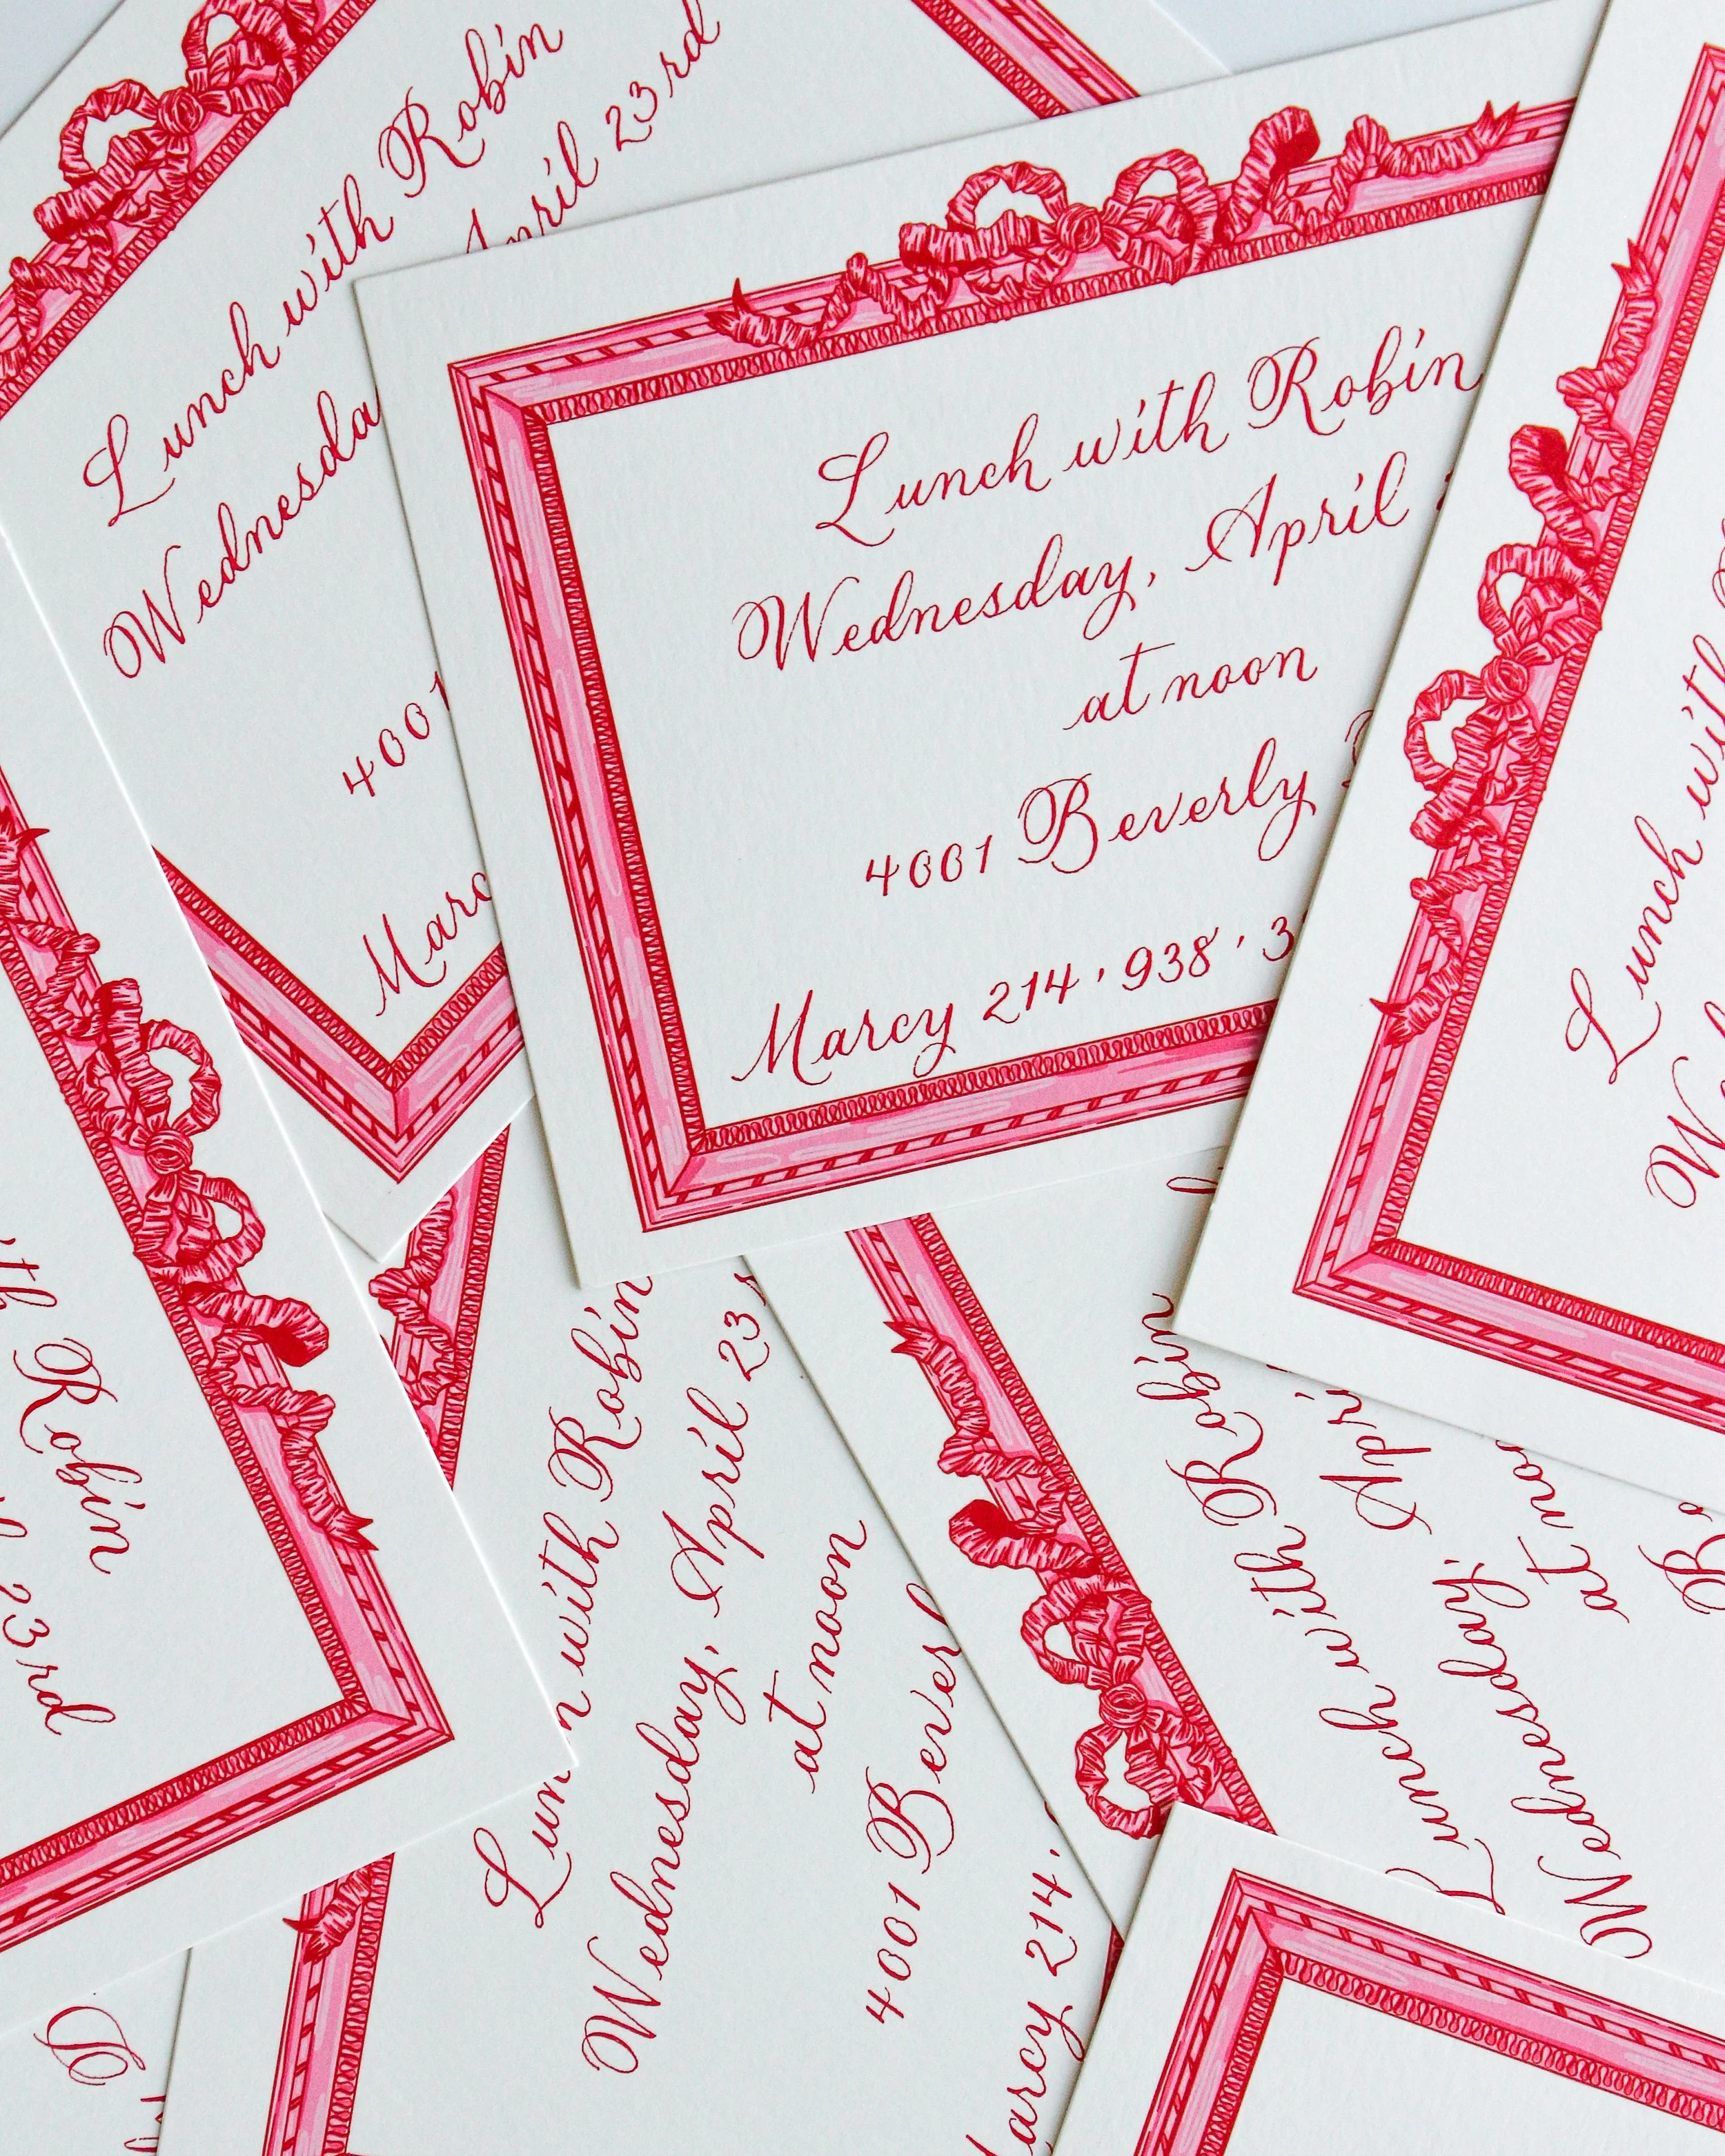 Lunch with Robin
April 23rd
Wednesda
4001
Marc
Lunch with Robin
Wednesday, April
at noon
4001 Beverly
Marcy 214 · 938 · 3
Lunch with
with Robin
23rd
Lunch with Robin
Wednesday, April 23
at noon
4001 Beverl
Marcy 214 ·
Lunch with Robin
Wednesday, Apri
at noon